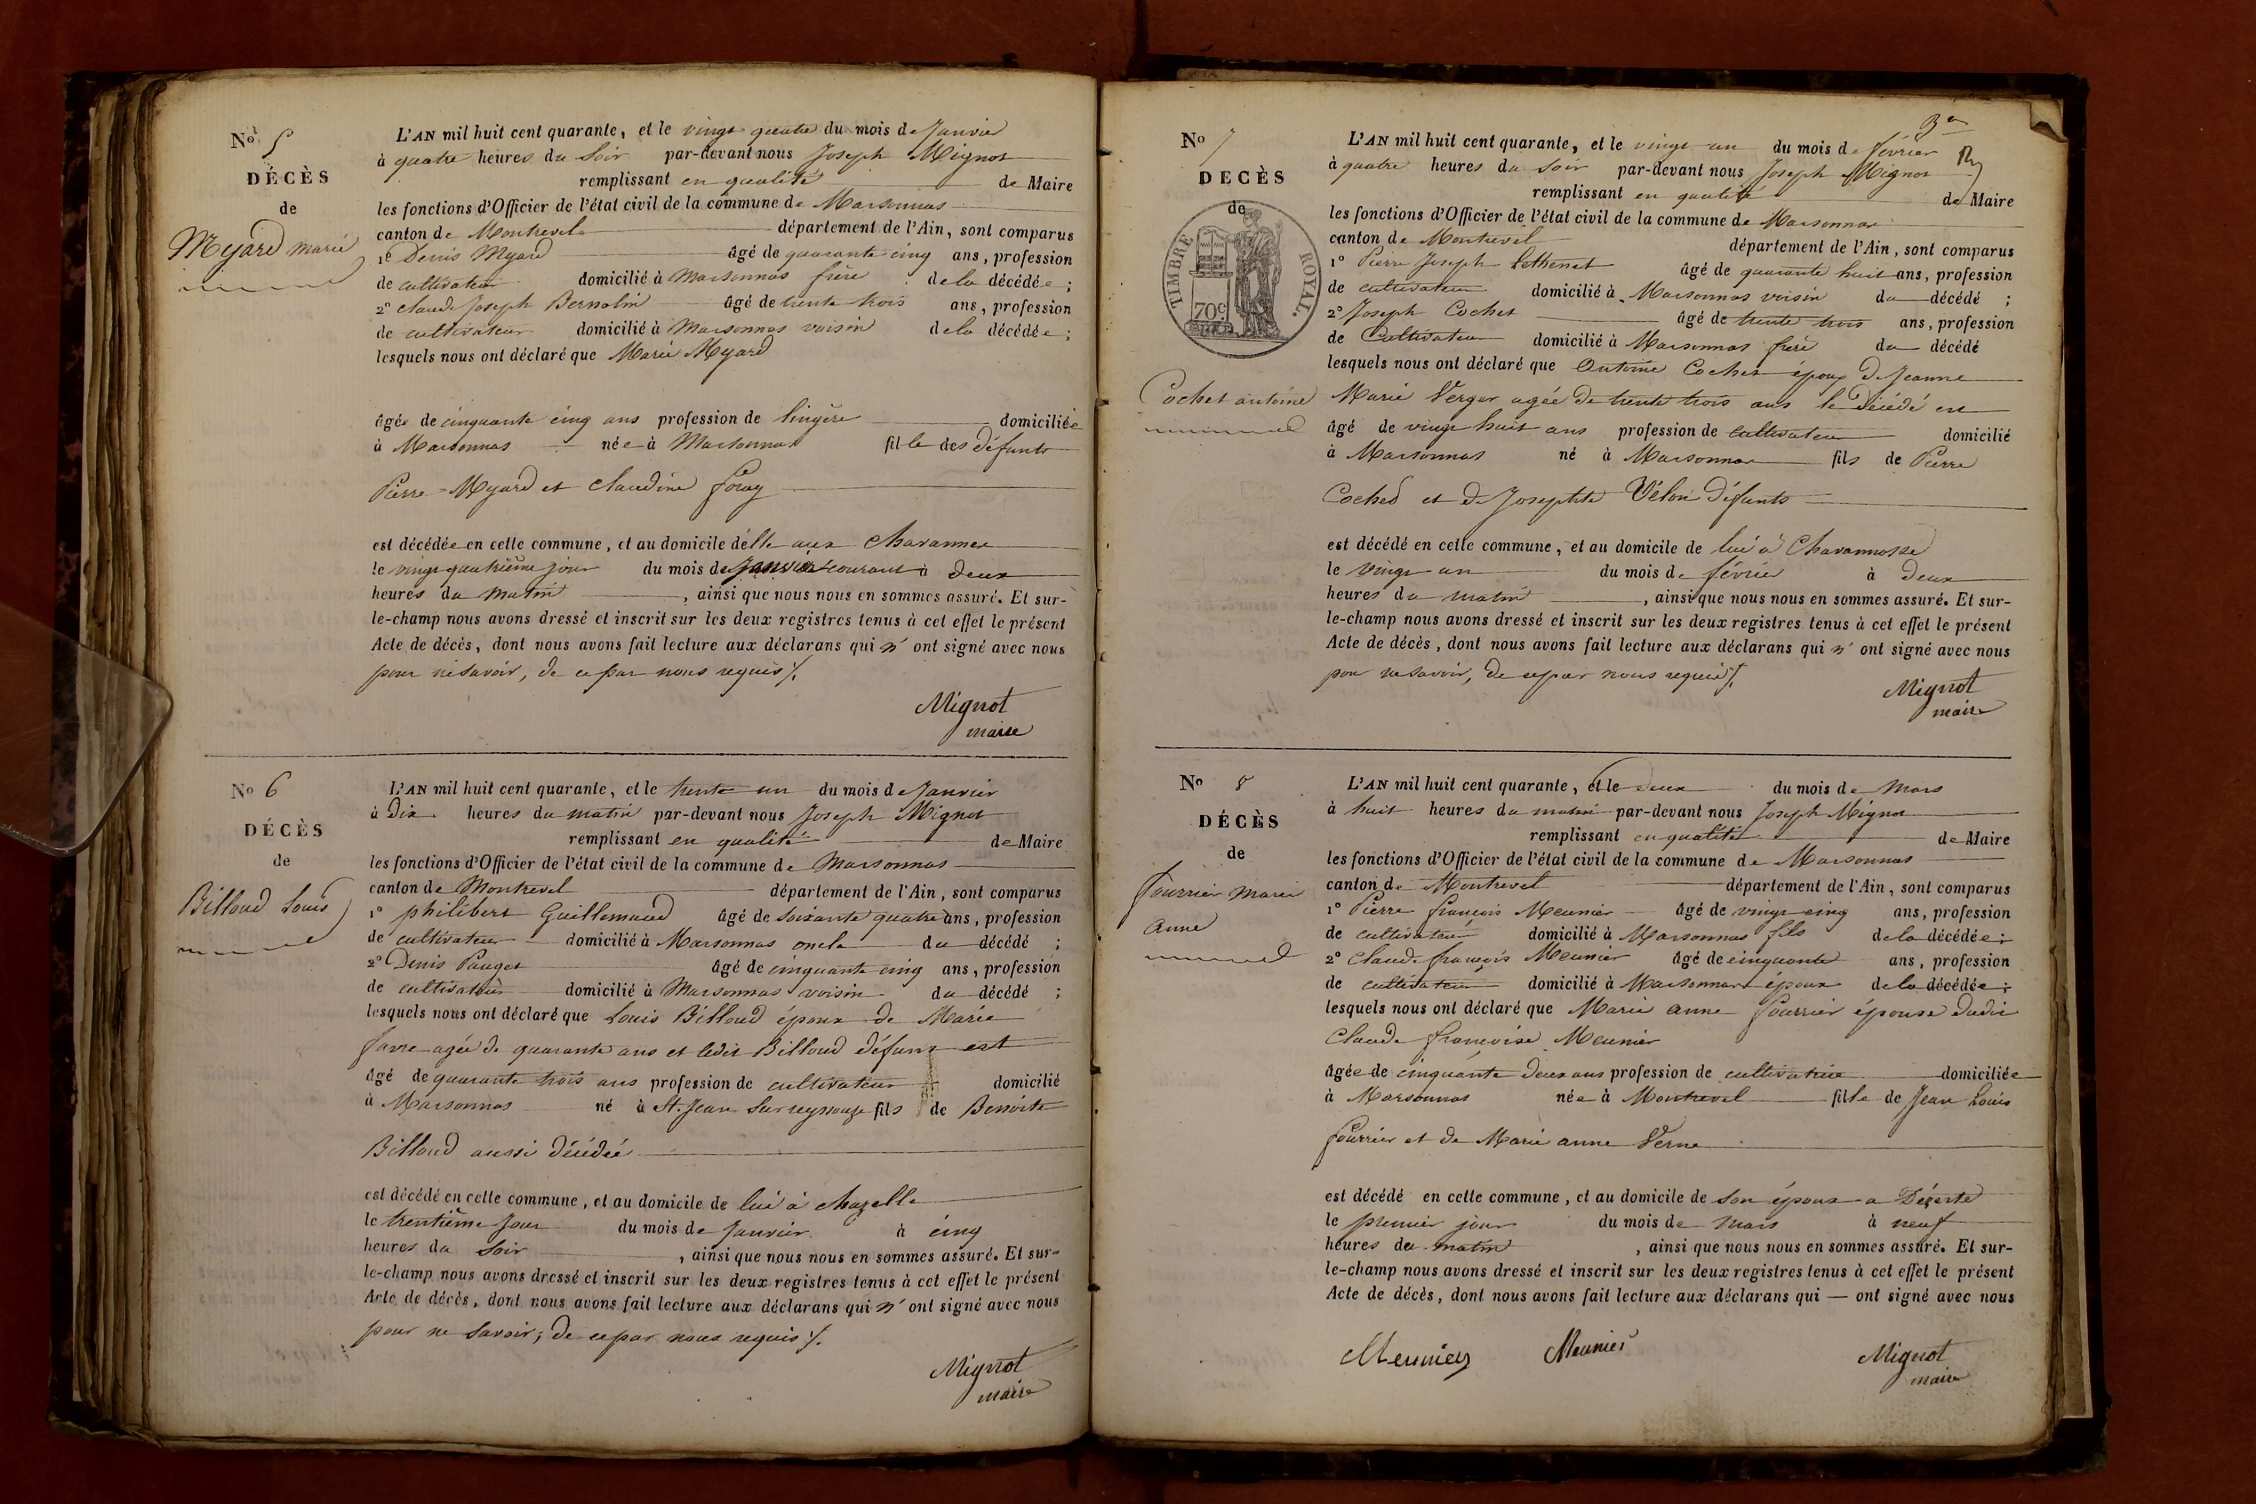 No 5
DÉCÈS
de
Myard Marie
L'AN mil huit cent quarante, et le vingt quatre du mois de Janvier
à quatre heures du Soir par-devant nous Joseph Mignot
remplissant en qualité de Maire
les fonctions d'Officier de l'état civil de la commune de Marsonnas
canton de Montrevel département de l'Ain, sont comparus
1º Denis Myard âgé de quarante cinq ans, profession
de cultivateur domicilié à Marsonnas frère de la décédée ;
2º Claude Joseph Bernolin âgé de trente trois ans, profession
de cultivateur domicilié à Marsonnas voisin de la décédée ;
lesquels nous ont déclaré que Marie Myard
âgée de cinquante cinq ans profession de lingère domiciliée
à Marsonnas née à Marsonnas fille des défunts
Pierre Myard et Claudine
est décédée en cette commune, et au domicile d'elle aux Chavannes
le vingt quatrième jour du mois de Janvier courant à deux
heures du matin, ainsi que nous nous en sommes assuré. Et sur-
le-champ nous avons dressé et inscrit sur les deux registres tenus à cet effet le présent
Acte de décès, dont nous avons fait lecture aux déclarans qui n' ont signé avec nous
pour ne savoir, de ce par nous requis ./.
Mignot
maire
No 6
DÉCÈS
de
Billoud Louis
L'AN mil huit cent quarante, et le trente un du mois de Janvier
à dix heures du matin par-devant nous Joseph Mignot
remplissant en qualité de Maire
les fonctions d'Officier de l'état civil de la commune de Marsonnas
canton de Montrevel département de l'Ain, sont comparus
1º Philibert Guillemaud âgé de soixante quatre ans, profession
de cultivateur domicilié à Marsonnas oncle du décédé ;
2º Denis Pauget âgé de cinquante cinq ans, profession
de cultivateur domicilié à Marsonnas voisin du décédé ;
lesquels nous ont déclaré que Louis Billoud époux de Marie
Favre agée de quarante ans et ledit Billoud défunt est
âgé de quarante trois ans profession de cultivateur domicilié
à Marsonnas né à St. Jean Sur reyssouze fils de Benoite
Billoud aussi décédée
est décédé en cette commune, et au domicile de lui à Chazelle
le trentième Jour du mois de Janvier à cinq
heures du Soir, ainsi que nous nous en sommes assuré. Et sur-
le-champ nous avons dressé et inscrit sur les deux registres tenus à cet effet le présent
Acte de décès, dont nous avons fait lecture aux déclarans qui n' ont signé avec nous
pour ne Savoir, de ce par nous requis ./.
Mignot
maire
3e
No 7
DECÈS
de
TIMBRE ROYAL.
70c
Cochet antoine
L'AN mil huit cent quarante, et le vingt un du mois de février
à quatre heures du Soir par-devant nous Joseph Mignot
remplissant en qualité de Maire
les fonctions d'Officier de l'état civil de la commune de Marsonnas
canton de Montrevel département de l'Ain, sont comparus
1º Pierre Joseph Péthenet âgé de quarante huit ans, profession
de cultivateur domicilié à Marsonnas voisin du décédé ;
2º Joseph Cochet âgé de trente trois ans, profession
de Cultivateur domicilié à Marsonnas frère du décédé
lesquels nous ont déclaré que Antoine Cochet époux de Jeanne
Marie Verger agée de trente trois ans le décédé en
âgé de vingt huit ans profession de cultivateur domicilié
à Marsonnas né à Marsonnas fils de Pierre
Cochet et de Josephte Vélon défunts
est décédé en cette commune, et au domicile de lui à Chavannosse
le vingt un du mois de février à deux
heures du matin, ainsi que nous nous en sommes assuré. Et sur-
le-champ nous avons dressé et inscrit sur les deux registres tenus à cet effet le présent
Acte de décès, dont nous avons fait lecture aux déclarans qui n' ont signé avec nous
pour ne savoir, de ce par nous requis ./.
Mignot
maire
No 8
DÉCÈS
de
Fourrier Marie
Anne
L'AN mil huit cent quarante, et le deux du mois de Mars
à huit heures du matin par-devant nous Joseph Mignot
remplissant en qualité de Maire
les fonctions d'Officier de l'état civil de la commune de Marsonnas
canton de Montrevel département de l'Ain, sont comparus
1º Pierre françois Meunier âgé de vingt cinq ans, profession
de cultivateur domicilié à Marsonnas fils de la décédée ;
2º Claude françois Meunier âgé de cinquante ans, profession
de cultivateur domicilié à Marsonnas époux de la décédée ;
lesquels nous ont déclaré que Marie anne Fourrier épouse dudit
Claude françoise Meunier
âgée de cinquante deux ans profession de cultivatrice domiciliée
à Marsonnas née à Montrevel fille de Jean Louis
Fourrier et de Marie anne Verne
est décédé en cette commune, et au domicile de son époux a Dézerte
le premier jour du mois de Mars à neuf
heures du matin, ainsi que nous nous en sommes assuré. Et sur-
le-champ nous avons dressé et inscrit sur les deux registres tenus à cet effet le présent
Acte de décès, dont nous avons fait lecture aux déclarans qui — ont signé avec nous
Meunier Meunier Mignot
maire